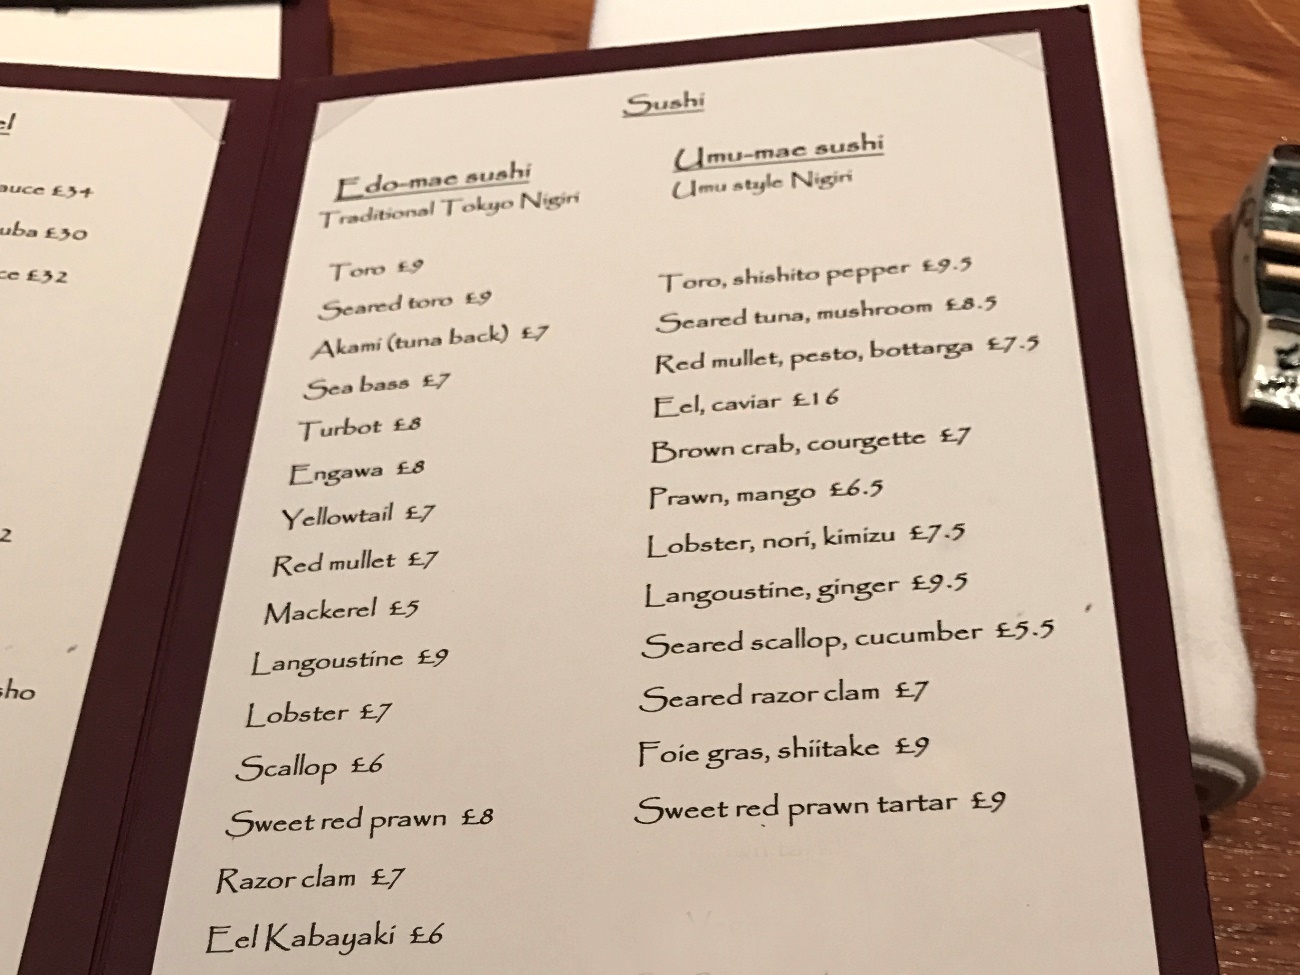 el
auce £34
uba £30
ce £32
2
sho
Sushi
Edo-mae sushi
Traditional Tokyo Nigiri
Toro £9
Seared toro £9
Akami (tuna back) £7
Sea bass £7
Turbot £8
Engawa £8
Yellowtail £7
Red mullet £7
Mackerel £5
Langoustine £9
Lobster £7
Scallop £6
Sweet red prawn £8
Razor clam £7
Eel Kabayaki £6
Umu-mae sushi
Umu style Nigiri
Toro, shishito pepper £9.5
Seared tuna, mushroom £8.5
Red mullet, pesto, bottarga £7.5
Eel, caviar £16
Brown crab, courgette £7
Prawn, mango £6.5
Lobster, nori, kimizu £7.5
Langoustine, ginger £9.5
Seared scallop, cucumber £5.5
Seared razor clam £7
Foie gras, shiitake £9
Sweet red prawn tartar £9